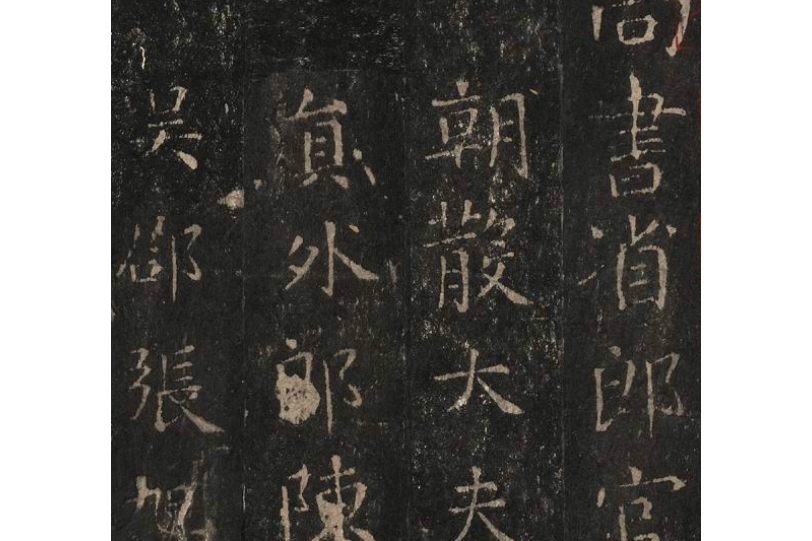 尚書省郎官
朝散大夫
員外郎陳
吳郡張旭